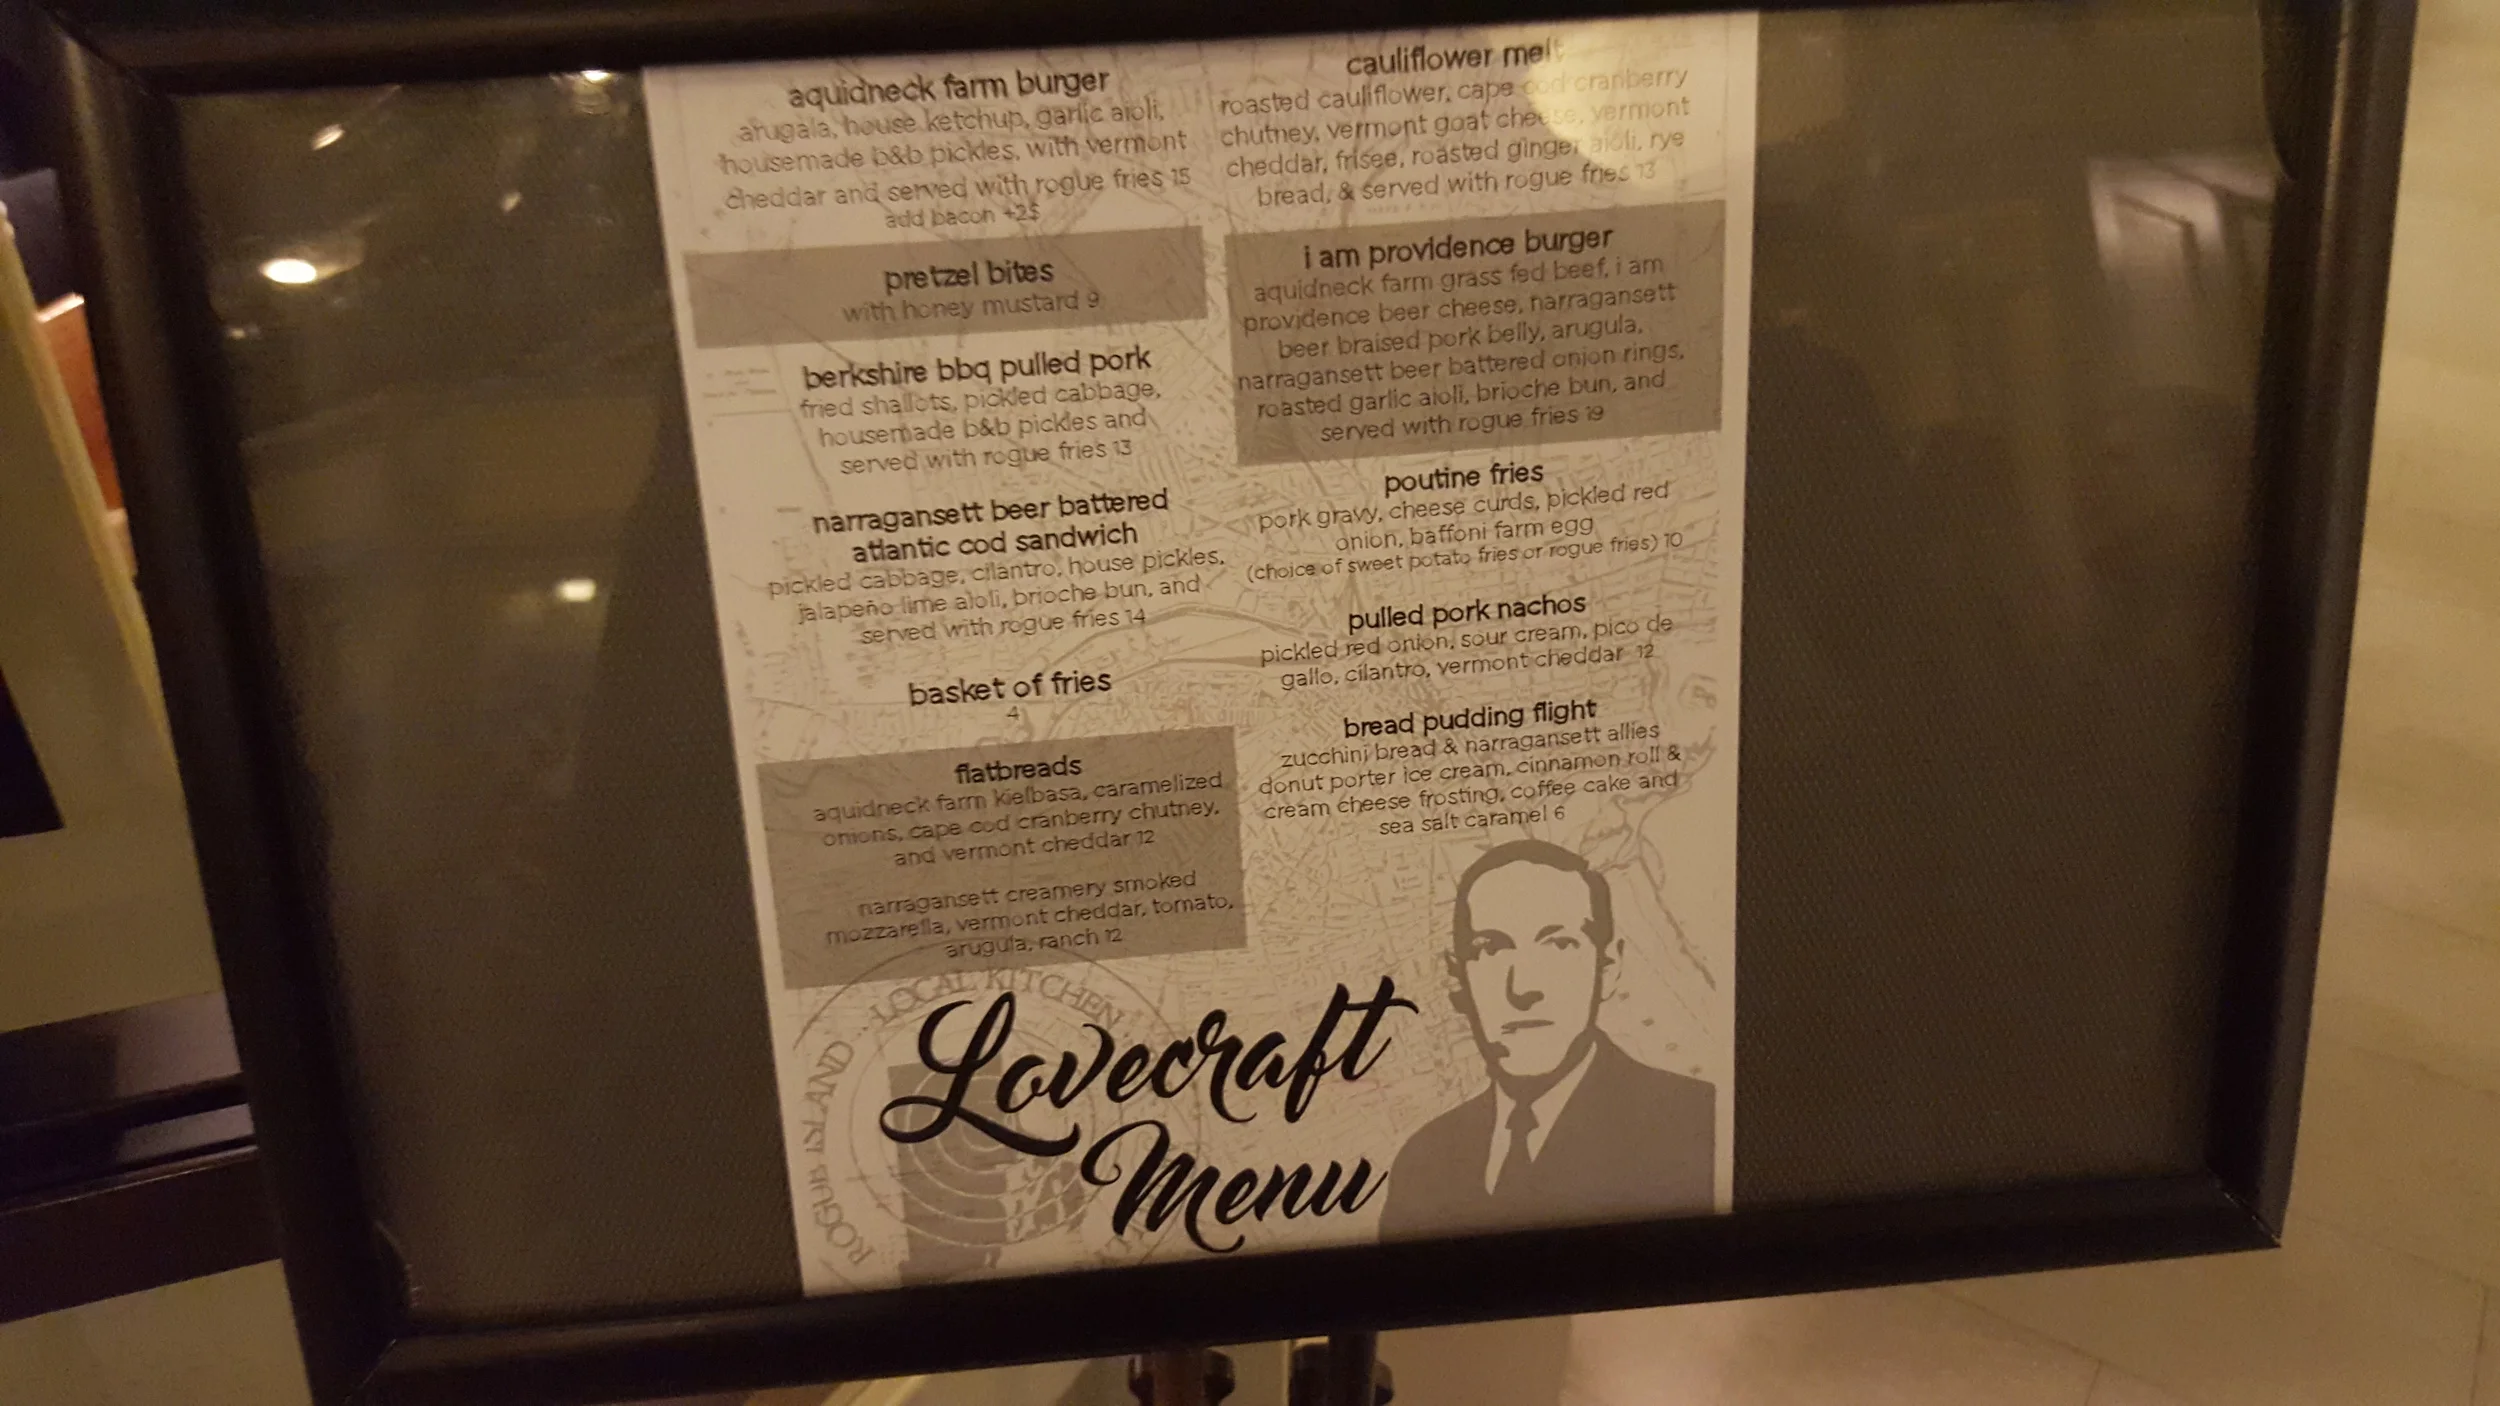 aquidneck farm burger
arugala, house ketchup, garlic aioli,
housemade b&b pickles, with vermont
cheddar and served with rogue fries 15
add bacon +2$
pretzel bites
with honey mustard 9
berkshire bbq pulled pork
fried shallots, pickled cabbage,
housemade b&b pickles and
served with rogue fries 13
narragansett beer battered
atlantic cod sandwich
pickled cabbage, cilantro, house pickles,
jalapeño lime aioli, brioche bun, and
served with rogue fries 14
basket of fries
4
flatbreads
aquidneck farm kielbasa, caramelized
onions, cape cod cranberry chutney,
and vermont cheddar 12
narragansett creamery smoked
mozzarella, vermont cheddar, tomato,
arugula, ranch 12
cauliflower melt
roasted cauliflower, cape cod cranberry
chutney, vermont goat cheese, vermont
cheddar, frisee, roasted ginger aioli, rye
bread, & served with rogue fries 13
i am providence burger
aquidneck farm grass fed beef, i am
providence beer cheese, narragansett
beer braised pork belly, arugula,
narragansett beer battered onion rings,
roasted garlic aioli, brioche bun, and
served with rogue fries 19
poutine fries
pork gravy, cheese curds, pickled red
onion, baffoni farm egg
(choice of sweet potato fries or rogue fries) 10
pulled pork nachos
pickled red onion, sour cream, pico de
gallo, cilantro, vermont cheddar 12
bread pudding flight
zucchini bread & narragansett allies
donut porter ice cream, cinnamon roll &
cream cheese frosting, coffee cake and
sea salt caramel 6
ROGUE ISLAND ... LOCAL KITCHEN
Lovecraft
Menu